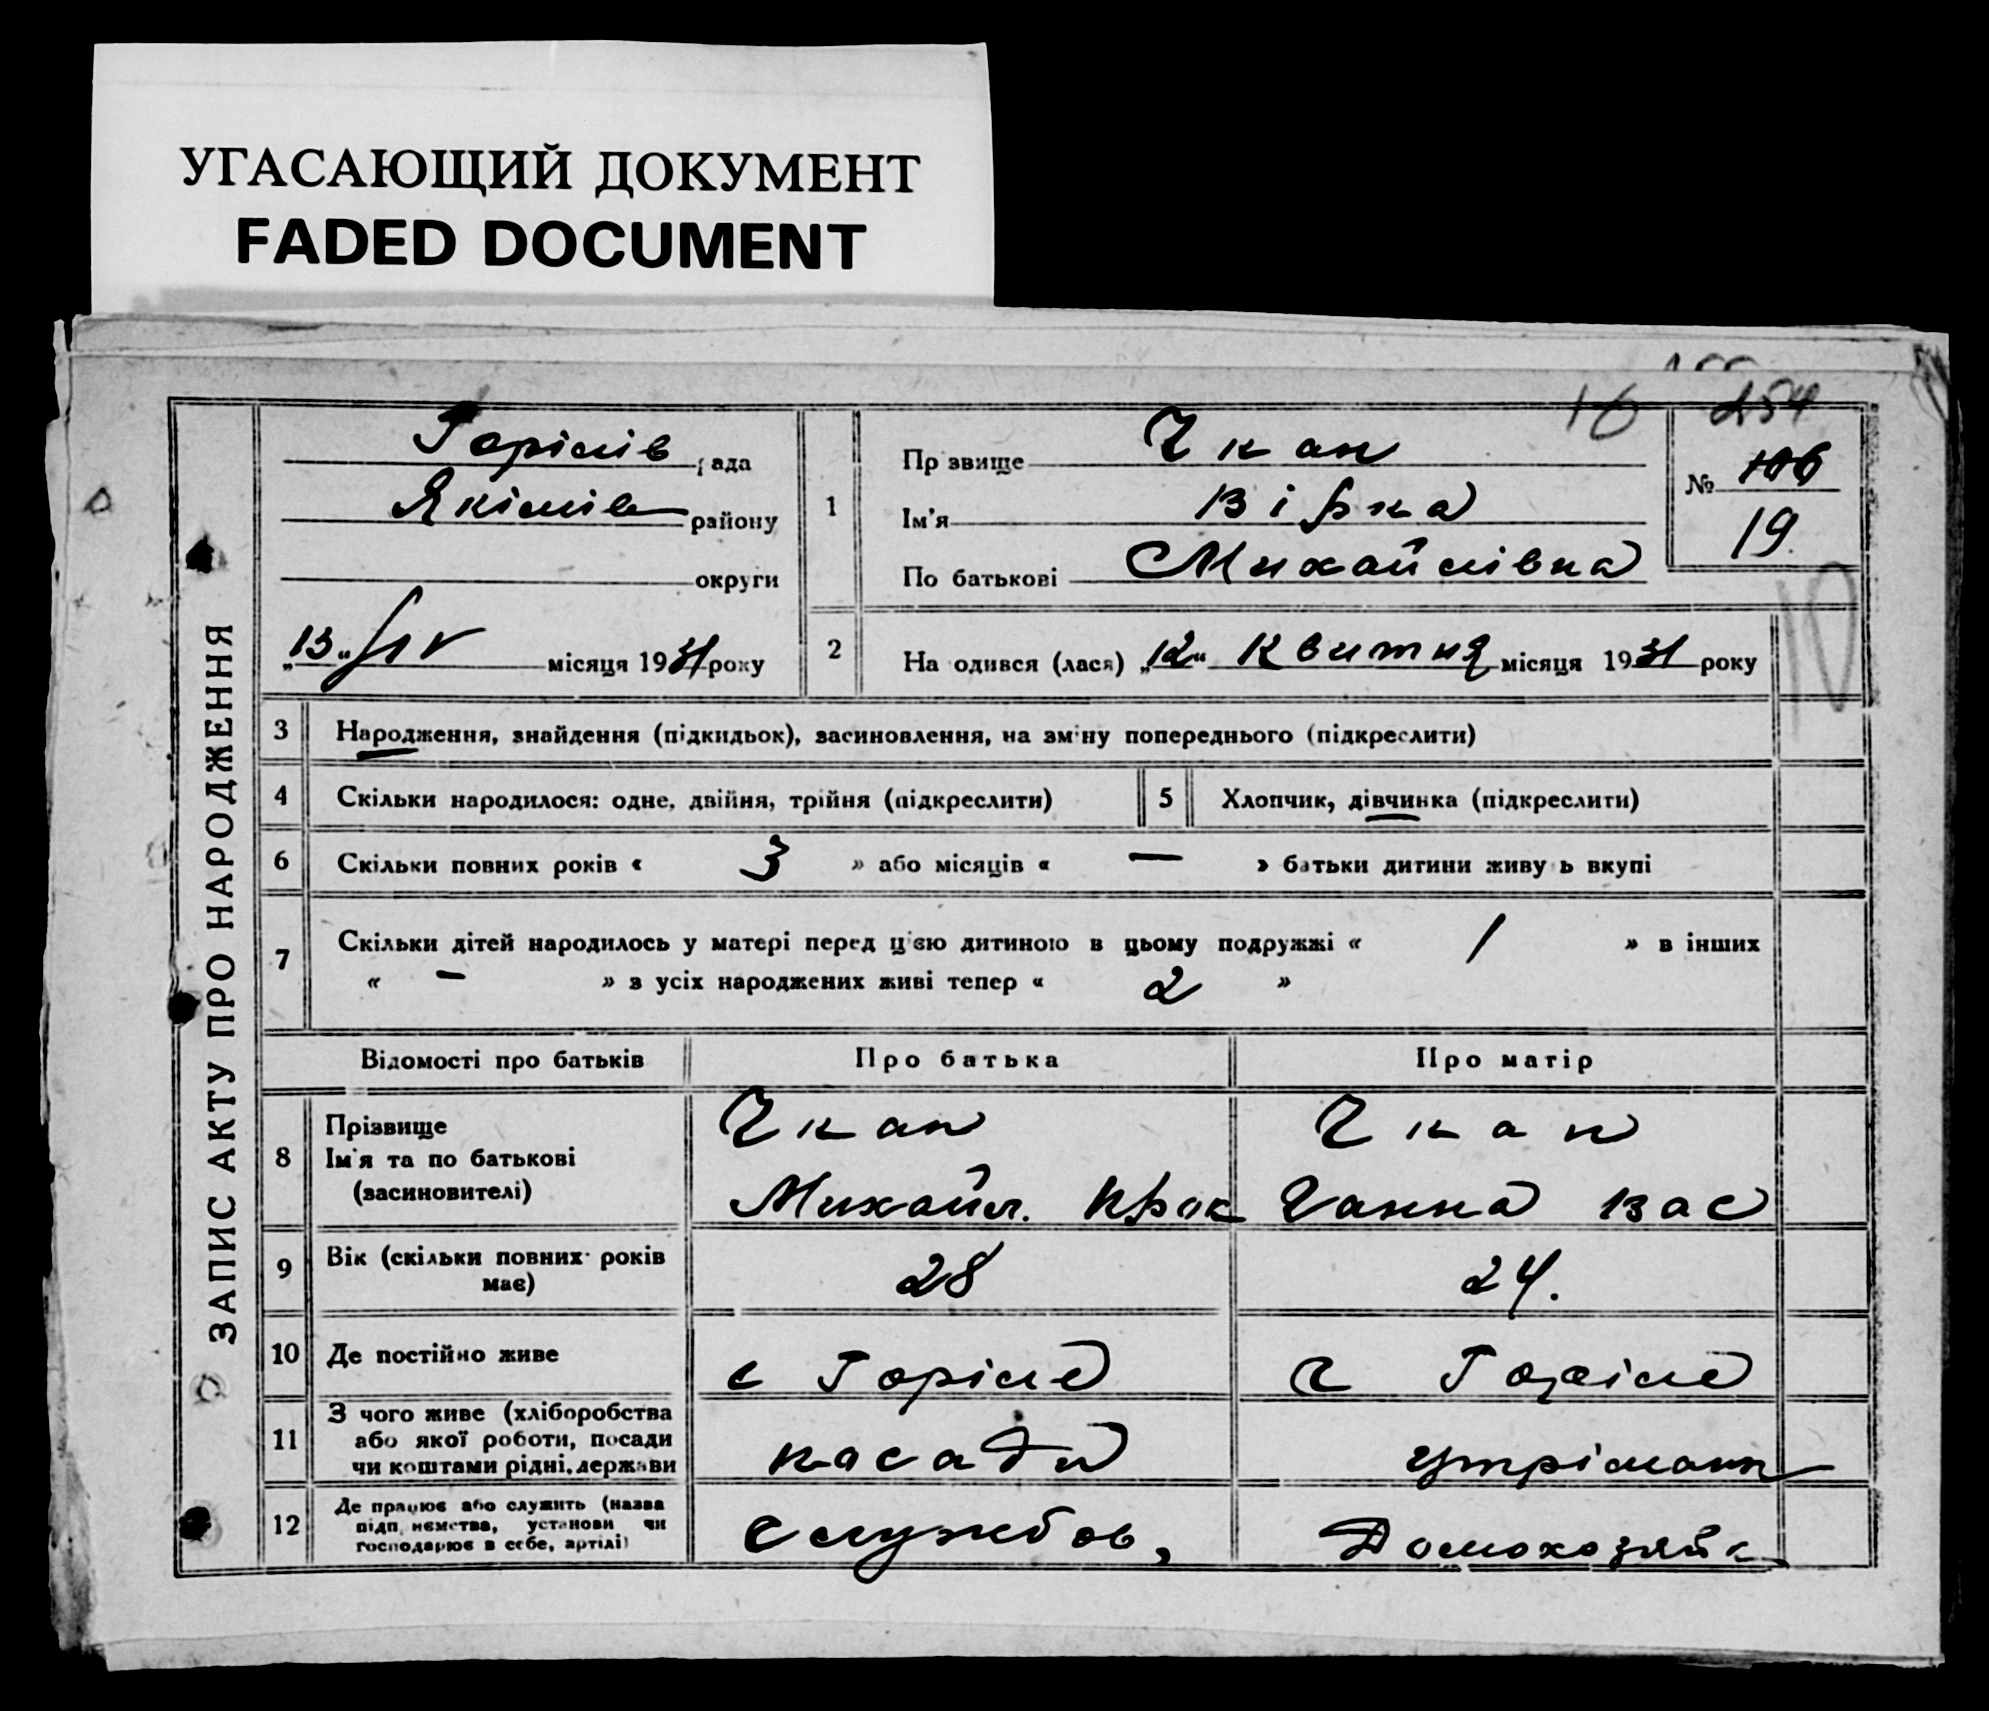 УГАСАЮЩИЙ ДОКУМЕНТ
FADED DOCUMENT
16 254
ЗАПИС АКТУ ПРО НАРОДЖЕННЯ
Горілів рада
Якімів району
округи
„13“ місяця 1931 року
1
Пр звище Чкан
Ім'я Вірка
По батькові Михайлівна
№ 106
19.
10
2 На одився (лася) „12“ Квитня місяця 1931 року
3 Народження, знайдення (підкидьок), засиновлення, на зміну попереднього (підкреслити)
4 Скільки народилося: одне, двійня, трійня (підкреслити) 5 Хлопчик, дівчинка (підкреслити)
6 Скільки повних років « 3 » або місяців « — » батьки дитини живу ь вкупі
7 Скільки дітей народилось у матері перед цією дитиною в цьому подружжі « 1 » в інших
« - » з усіх народжених живі тепер « 2 »
Відомості про батьків Про батька Про матір
8 Прізвище Чкан Чкан
Ім'я та по батькові
(засиновителі) Михайл. Прок Ганна Вас
9 Вік (скільки повних років
має) 28 24.
10 Де постійно живе с Горіле с Горіле
11 З чого живе (хліборобства
або якої роботи, посади
чи коштами рідні, держави посади утріман
12 Де працює або служить (назва
підп иємства, установи чи
господарює в себе, артілі) службов, Домохозяйк